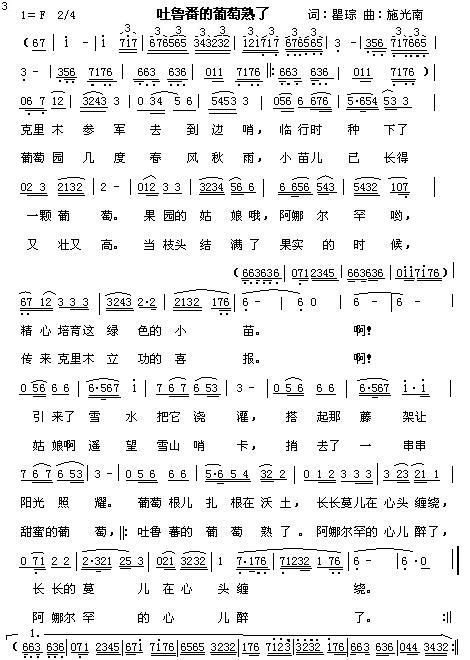 3
吐鲁番的葡萄熟了
1= F 2/4 词：瞿琮 曲：施光南
(67 | 1 - | 1 717 | 676565 343232 | 121717 676565 | 3 - | 356 717665 |
3 - | 356 7176 | 663 636 | 011 7176 ‖: 663 636 | 011 7176 ) |
06 7 12 | 3243 3 | 0 34 5 6 | 5453 3 | 056 6 676 | 5·654 53 3 |
克里 木 参 军 去 到 边 哨， 临 行时 种 下了
葡萄 园 几 度 春 风 秋 雨， 小 苗儿 已 长得
02 3 2132 | 2 - | 012 3 3 | 3234 56 6 | 6 656 543 | 5432 107 |
一颗 葡 萄。 果 园的 姑 娘哦， 阿娜 尔 罕 哟，
又 壮又 高。 当 枝头 结 满了 果实 的 时 候，
(663636 | 0712345 | 663636 | 0117176 )
67 12 3 3 3 | 3243 2·2 | 2132 176 | 6 - | 6 0 | 6 - | 6 - |
精 心 培育这 绿 色的 小 苗。 啊！
传 来 克里木 立 功的 喜 报。 啊！
0 56 6 6 | 6·567 1 | 7 6 7 6 53 | 3 - | 0 5 6 6 | 6·567 1·1 |
引 来了 雪 水 把它 浇 灌， 搭 起那 藤 架让
姑 娘啊 遥 望 雪山 哨 卡， 捎 去了 一 串串
7 6 7 6 53 | 3 - | 0 5 6 6 | 5·6 5 4 32 2 | 0 1 2 3 3 3 | 3 23 5 32 |
阳光 照 耀。 葡萄 根儿 扎 根在 沃 土， 长长 蔓儿在 心头 缠绕，
甜蜜的葡 萄，‖: 吐鲁 蕃的 葡萄 熟 了。 阿娜尔罕的 心儿 醉了，
0 71 2 2 | 2·321 25 3 | 021 3232 | 1 7·176 | 71232 1 76 | 6 - | 6·0 |
长 长的 蔓 儿 在心 头 缠 绕。
阿 娜尔 罕 的 心 儿 醉 了。 :‖
1.
(663 636 | 071 2345 | 671 7176 | 6565 3232 | 176 7123 | 3232 176 | 663 636 | 663 636 | 044 3432 :‖